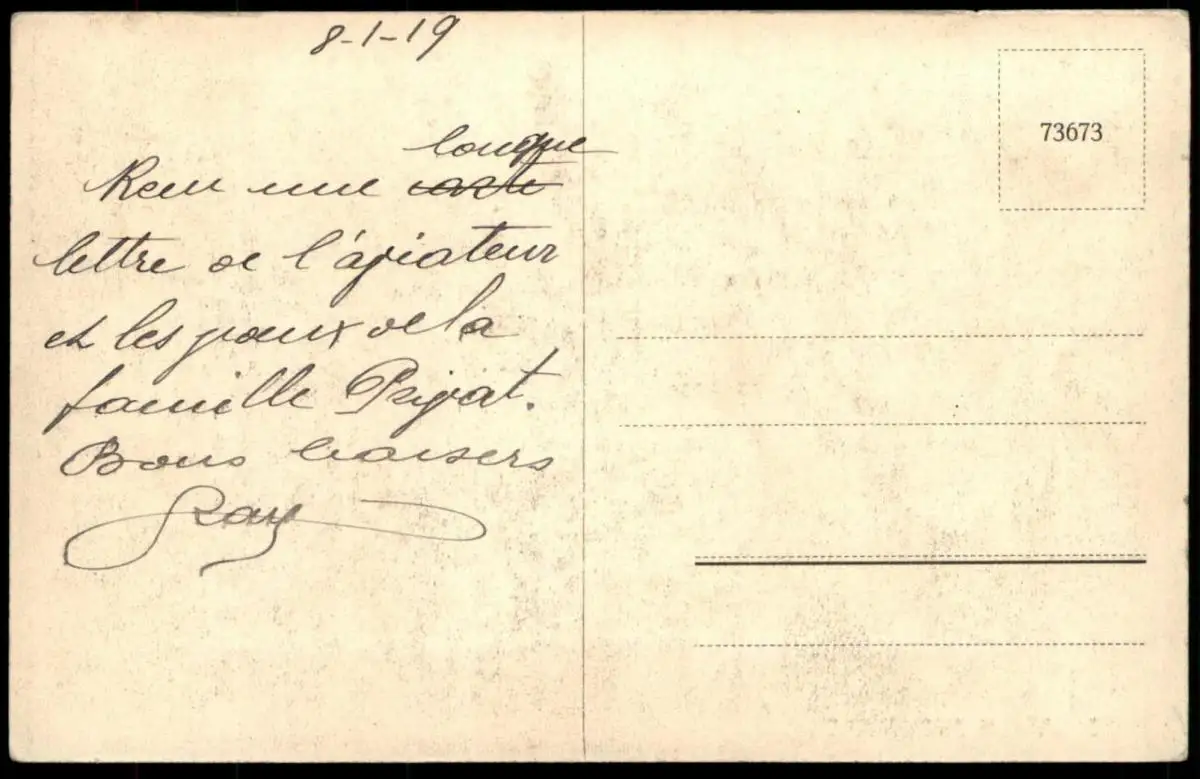 8-1-19
longue
Reçu une carte
lettre de l'aviateur
et les vœux de la
famille Privat.
Bons baisers
Ray
73673